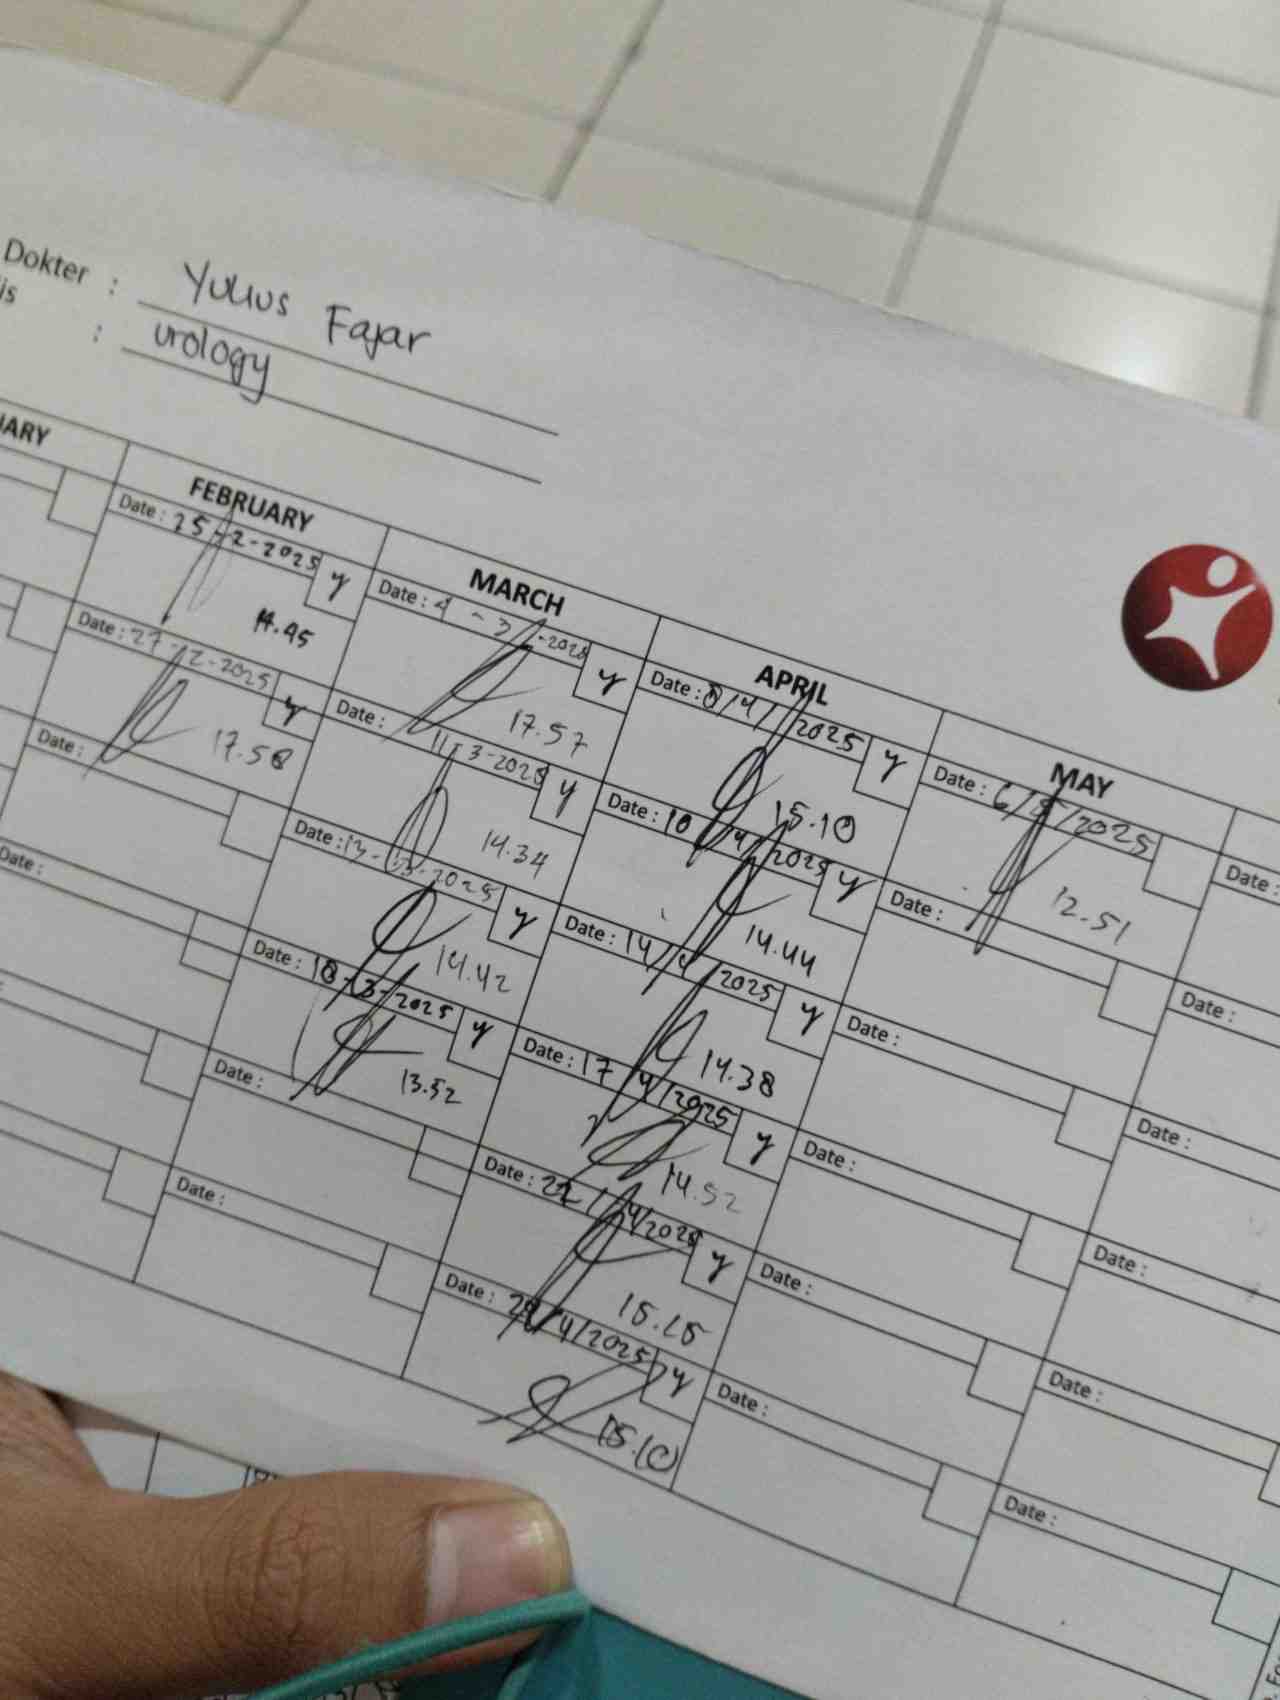 Dokter : Yulius Fajar
is : urology
FEBRUARY
Date : 25-2-2025 y
14.45
Date : 27-2-2025 y
17.58
Date :
Date :
Date :
Date :
MARCH
Date : 4-3-2025 y
17.57
Date : 11-3-2025 y
14.34
Date : 13-3-2025 y
14.42
Date : 18-3-2025 y
13.52
APRIL
Date : 8/4/2025 y
15.10
Date : 10/4/2025 y
14.44
Date : 14/4/2025 y
14.38
Date : 17/4/2025 y
14.52
Date : 22/4/2025 y
15.15
Date : 29/4/2025 y
15.10
MAY
Date : 6/5/2025
12.51
Date :
Date :
Date :
Date :
Date :
Date :
Date :
Date :
Date :
Date :
Date :